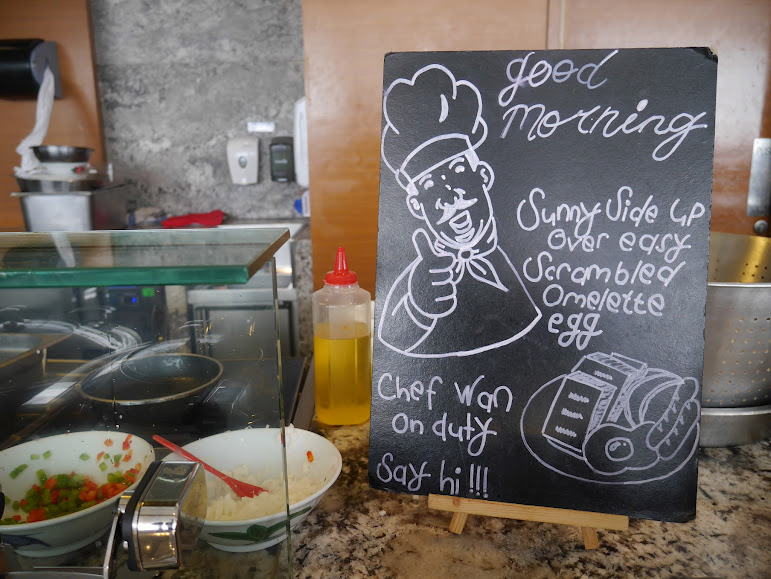 good
morning
Sunny Side up
over easy
Scrambled
Omelette
egg
Chef Wan
on duty
Say hi !!!